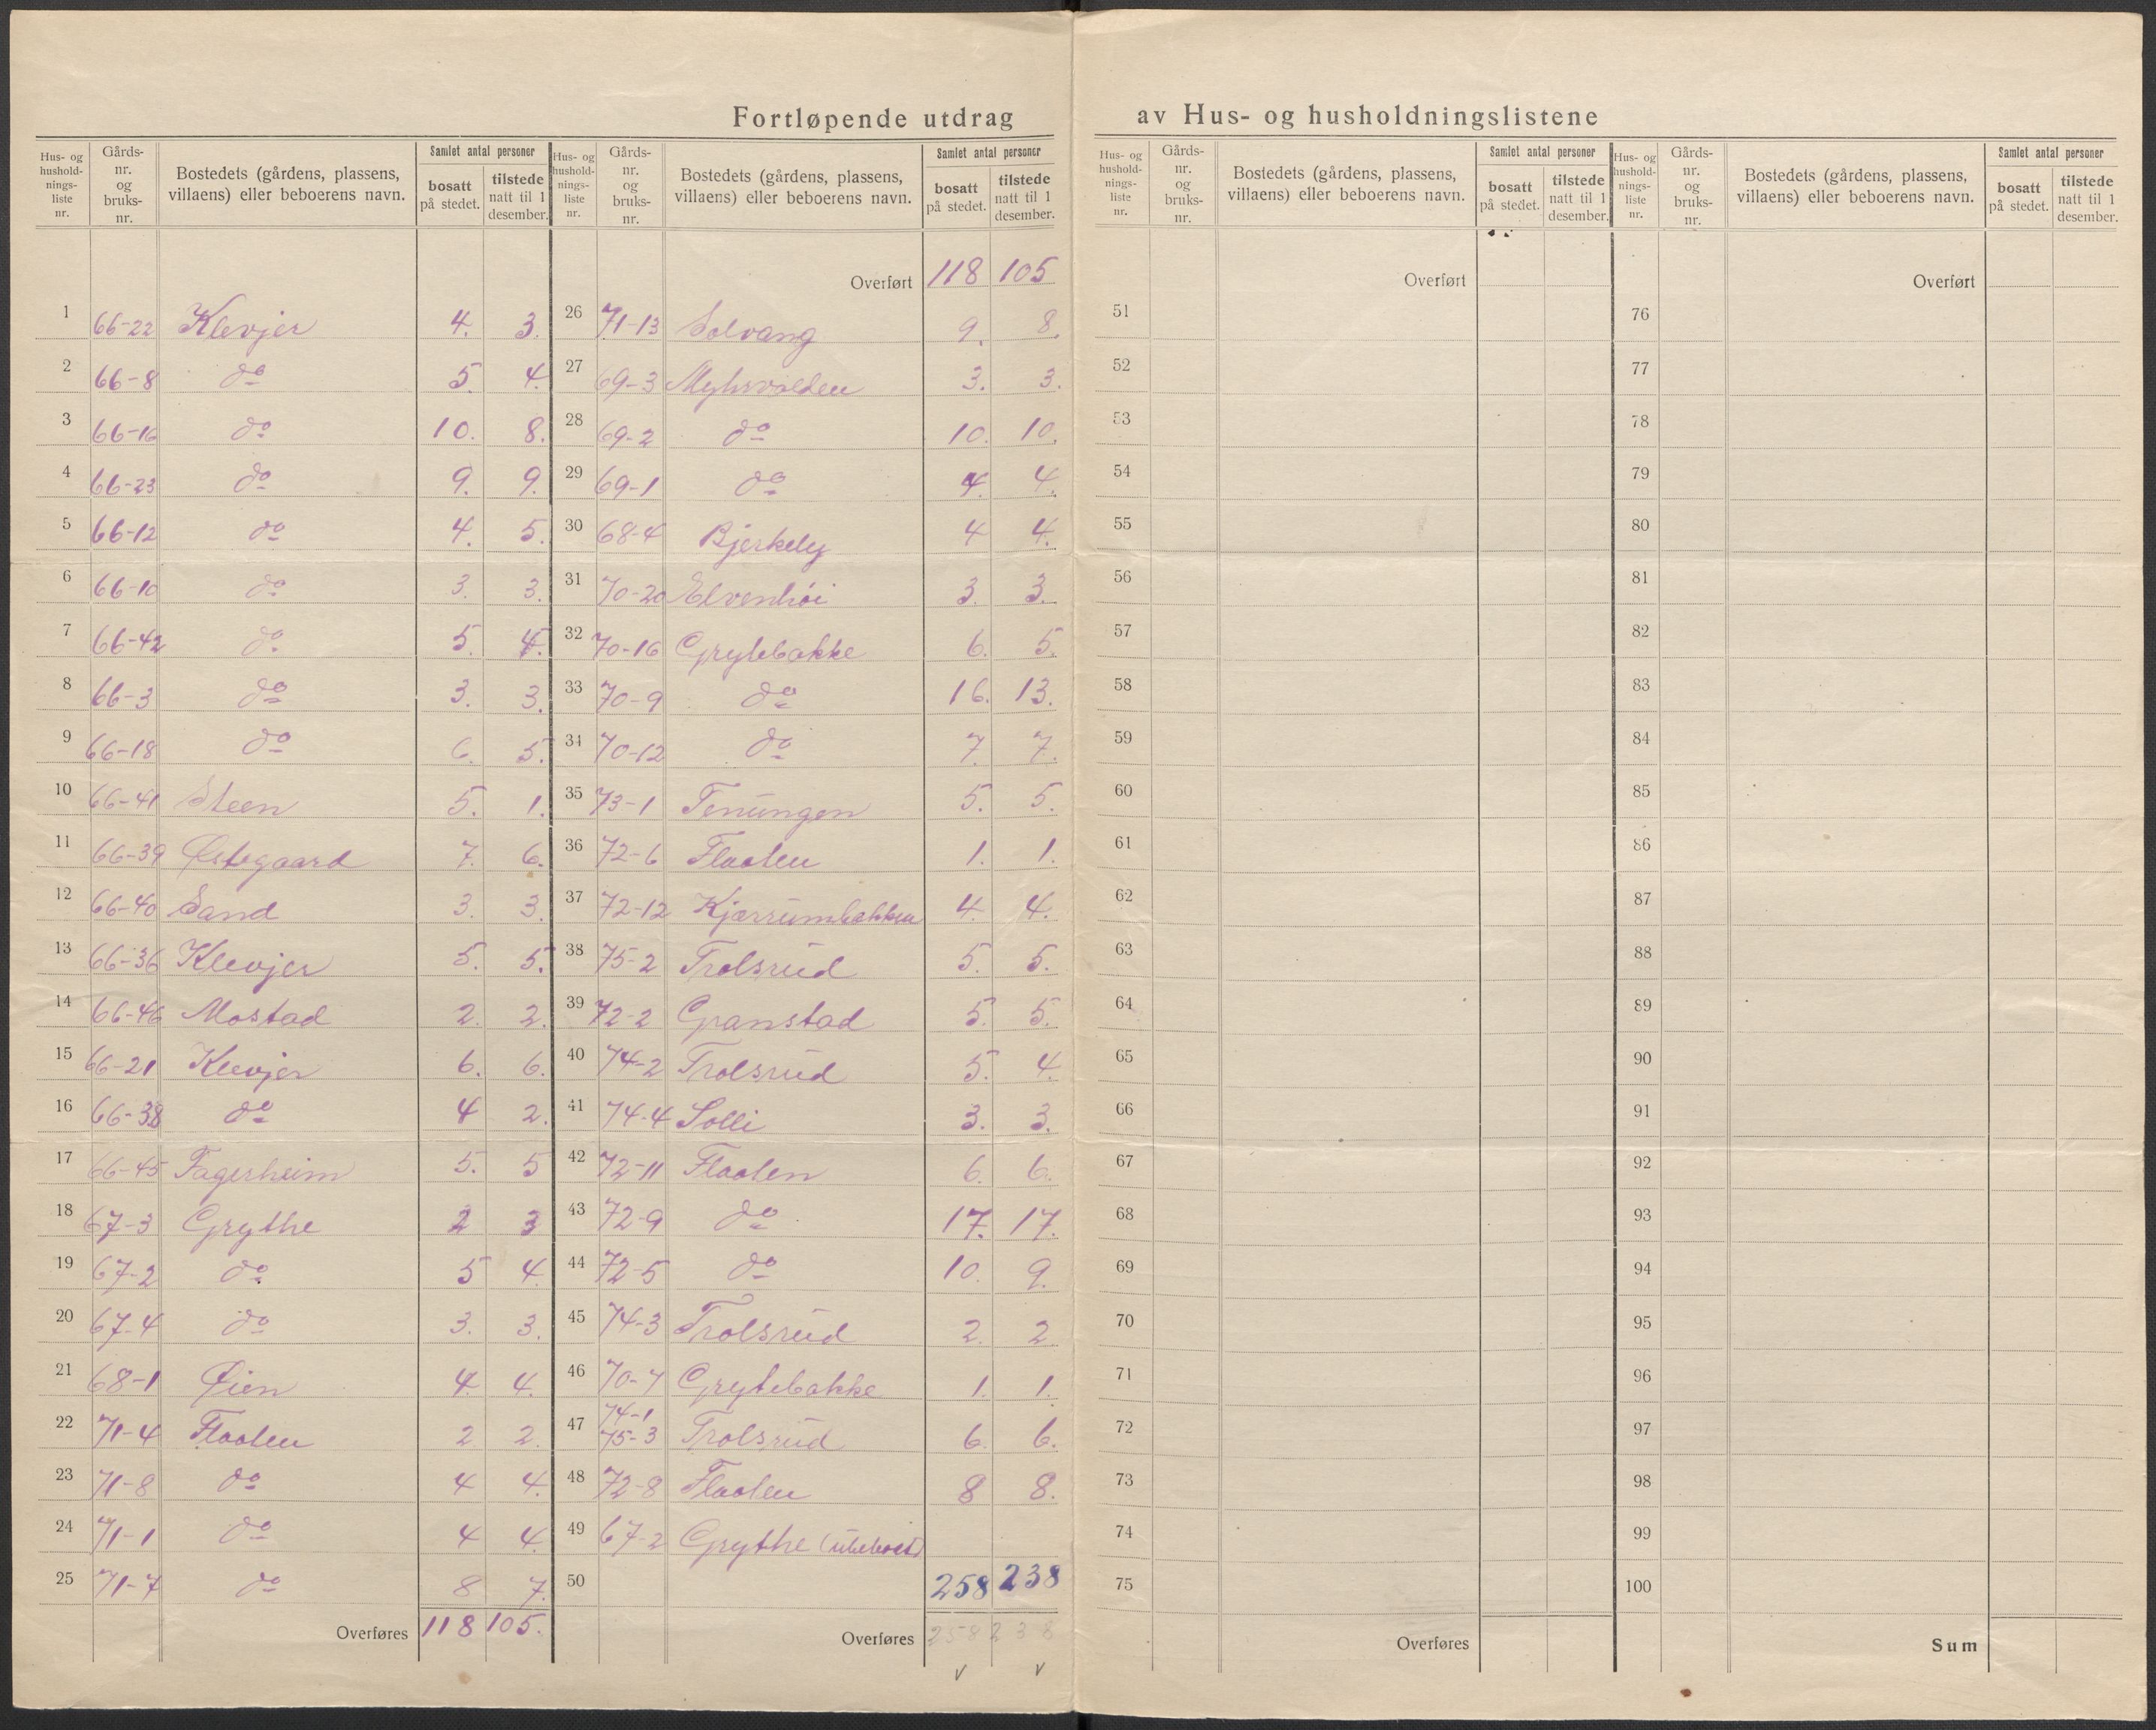 Fortløpende utdrag av Hus- og husholdningslistene
Hus- og husholdnings- liste nr. | Gårds- nr. og bruks- nr. | Bostedets (gårdens, plassens, villaens) eller beboerens navn. | Samlet antal personer | bosatt på stedet. | tilstede natt til 1 desember.
1 66-22 Klevjer 4. 3.
2 66-8 do 5 4.
3 66-16 do 10. 8.
4 66-23 do 9. 9.
5 66-12 do 4. 5.
6 66-10 do 3. 3.
7 66-42 do 5. 4.
8 66-3 do 3. 3.
9 66-18 do 6. 5.
10 66-41 Steen 5. 1.
11 66-39 Østegaard 7. 6.
12 66-40 Sand 3. 3.
13 66-36 Klevjer 5. 5.
14 66-46 Mostad 2. 2.
15 66-21 Klevjer 6. 6.
16 66-38 do 4 2.
17 66-45 Fagerheim 5. 5
18 67-3 Grythe 2 3
19 67-2 do 5 4.
20 67-4 do 3. 3.
21 68-1 Øien 4 4.
22 71-4 Flaalen 2 2.
23 71-8 do 4 4.
24 71-1 do 4 4.
25 71-7 do 8 7.
Overføres 118 105.
Hus- og husholdnings- liste nr. | Gårds- nr. og bruks- nr. | Bostedets (gårdens, plassens, villaens) eller beboerens navn. | Samlet antal personer | bosatt på stedet. | tilstede natt til 1 desember.
Overført 118 105
26 71-13 Solvang 9. 8.
27 69-3 Myhrvolden 3. 3.
28 69-2 do 10. 10.
29 69-1 do 4. 4.
30 68-4 Bjerkely 4 4.
31 70-20 Elvenhöi 3. 3.
32 70-16 Grytebakke 6. 5.
33 70-9 do 16. 13.
34 70-12 do 7. 7.
35 73-1 Tenüngen 5. 5.
36 72-6 Flaalen 1. 1.
37 72-12 Kjærrümbakken 4. 4.
38 75-2 Trolsrüd 5. 5.
39 72-2 Granstad 5. 5.
40 74-2 Trolsrüd 5. 4.
41 74-4 Solli 3. 3.
42 72-11 Flaalen 6. 6.
43 72-9 do 17. 17.
44 72-5 do 10. 9.
45 74-3 Trolsrüd 2. 2.
46 70-7 Grytebakke 1. 1.
47 74-1 75-3 Trolsrüd 6. 6.
48 72-8 Flaalen 8 8.
49 67-2 Grythe (übeboet)
50 258 238
Overføres 258 238
v v
Hus- og husholdnings- liste nr. | Gårds- nr. og bruks- nr. | Bostedets (gårdens, plassens, villaens) eller beboerens navn. | Samlet antal personer | bosatt på stedet. | tilstede natt til 1 desember.
Overført
51
52
53
54
55
56
57
58
59
60
61
62
63
64
65
66
67
68
69
70
71
72
73
74
75
Overføres
Hus- og husholdnings- liste nr. | Gårds- nr. og bruks- nr. | Bostedets (gårdens, plassens, villaens) eller beboerens navn. | Samlet antal personer | bosatt på stedet. | tilstede natt til 1 desember.
Overført
76
77
78
79
80
81
82
83
84
85
86
87
88
89
90
91
92
93
94
95
96
97
98
99
100
Sum